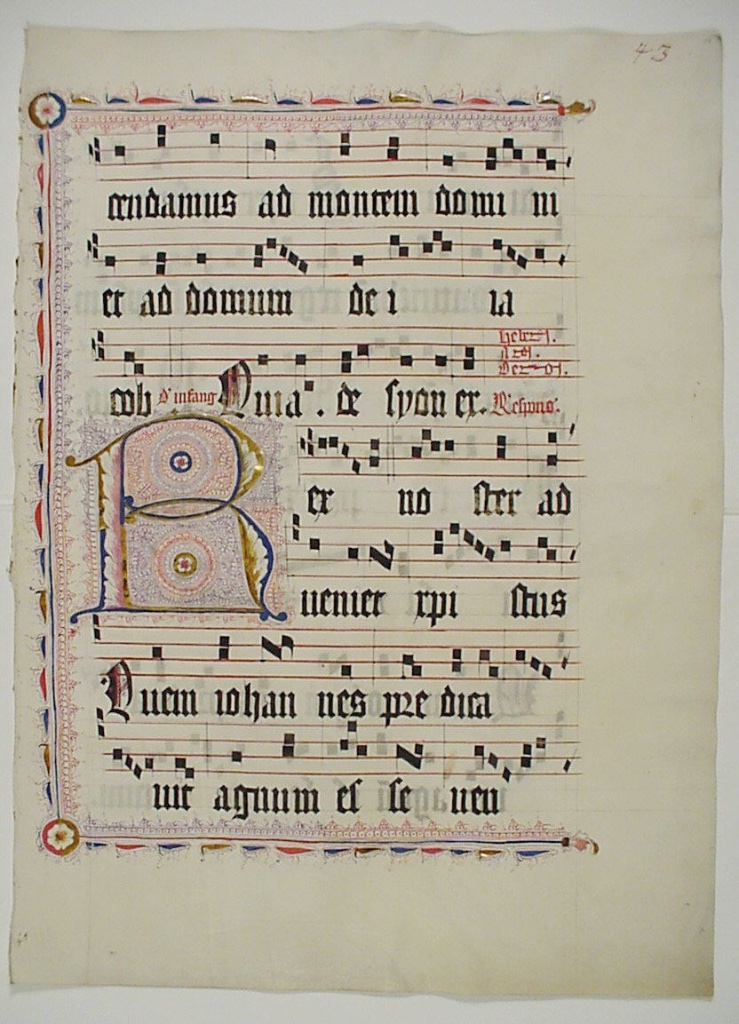 43
cendamus ad montem domi ni
et ad domum de i ia
cob Quia de syon ex. Respons.
Rex no ster ad
ueniet xpi stus
Quem iohan nes pre dica
uit agnum es se uen